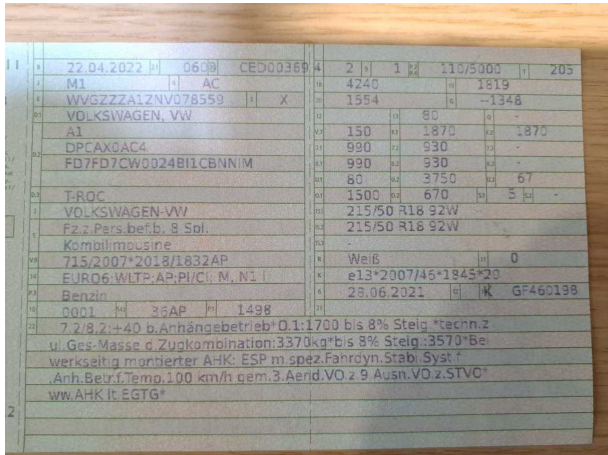 22.04.2022 0603 CED00369 4
M1 AC
WVGZZZA1ZNV078559 X
VOLKSWAGEN, VW
A1
DPCAX0AC4
FD7FD7CW0024BI1CBNNIM
T-ROC
VOLKSWAGEN-VW
Fz.z.Pers.bef.b. 8 Spl.
Kombilimousine
715/2007*2018/1832AP
EURO6;WLTP;AP;PI/CI; M, N1 I
Benzin
0001 36AP 1498
2 1 110/5000 205
4240 1819
1554 --1348
- 80 -
150 1870 1870
990 930 -
990 930 -
80 3750 67
1500 670 5 -
215/50 R18 92W
215/50 R18 92W
-
Weiß 0
e13*2007/46*1845*20
28.06.2021 K GF460198
22 7.2/8.2:+40 b.Anhängebetrieb*O.1:1700 bis 8% Steig.*techn.z
ul.Ges-Masse d.Zugkombination:3370kg*bis 8% Steig.:3570*Bei
werkseitig montierter AHK: ESP m.spez.Fahrdyn.Stabi.Syst.f
.Anh.Betr.f.Temp.100 km/h gem.3.Aend.VO.z.9.Ausn.VO.z.STVO*
ww.AHK lt.EGTG*